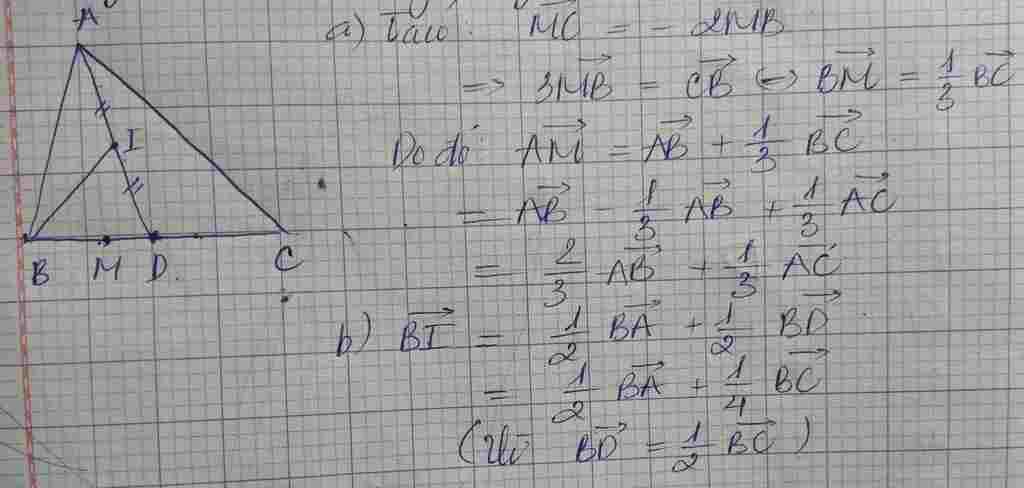 A
I
B M D. C
a) Ta có: \overrightarrow{MC} = - 2MB
=> 3\overrightarrow{MB} = \overrightarrow{CB} <=> \overrightarrow{BM} = \frac{1}{3} \overrightarrow{BC}
Do đó: \overrightarrow{AM} = \overrightarrow{AB} + \frac{1}{3} \overrightarrow{BC}
= \overrightarrow{AB} - \frac{1}{3} \overrightarrow{AB} + \frac{1}{3} \overrightarrow{AC}
= \frac{2}{3} \overrightarrow{AB} + \frac{1}{3} \overrightarrow{AC}
b) \overrightarrow{BI} = \frac{1}{2} \overrightarrow{BA} + \frac{1}{2} \overrightarrow{BD}
= \frac{1}{2} \overrightarrow{BA} + \frac{1}{4} \overrightarrow{BC}
( \overrightarrow{BD} = \frac{1}{2} \overrightarrow{BC} )